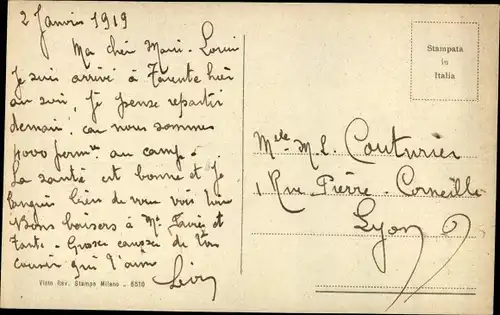 2 Janvier 1919
Ma cher Marie-Louise
Je suis arrivé à Tarente hier
au soir, je pense repartir
demain, car nous sommes
au camp.
La santé est bonne et je
languis bien de vous voir
Bons baisers à Mr et
Tante. Grosse caresse de ton
cousin qui t'aime
Visto Rev. Stampa Milano - 6510
Stampata
in
Italia
Mlle M. L. Couturier
1 Rue Pierre-Corneille
Lyon